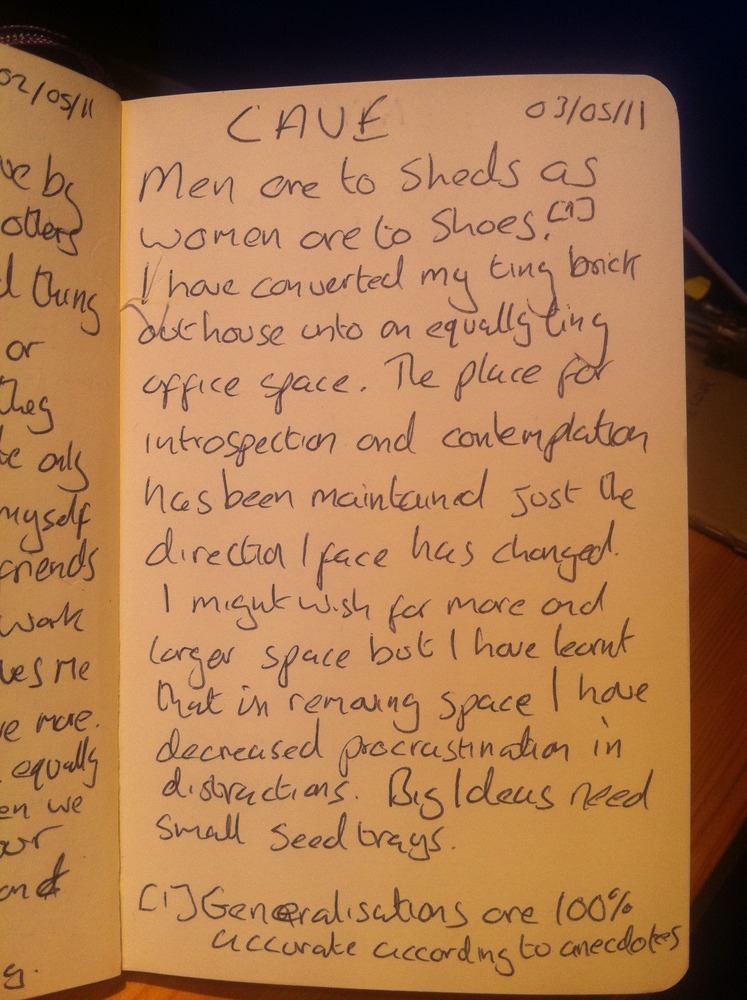 02/05/11
ve by
others
d thing
or
they
te only
myself
friends
work
ves me
ve more.
equally
en we
our
and
g.
CAVE
03/05/11
Men are to Sheds as
women are to Shoes.[1]
I have converted my tiny brick
outhouse into an equally tiny
office space. The place for
introspection and contemplation
has been maintained just the
direction I face has changed.
I might wish for more and
larger space but I have learnt
that in removing space I have
decreased procrastination in
distractions. Big Ideas need
small seed trays.
[1] Generalisations are 100%
accurate according to anecdotes